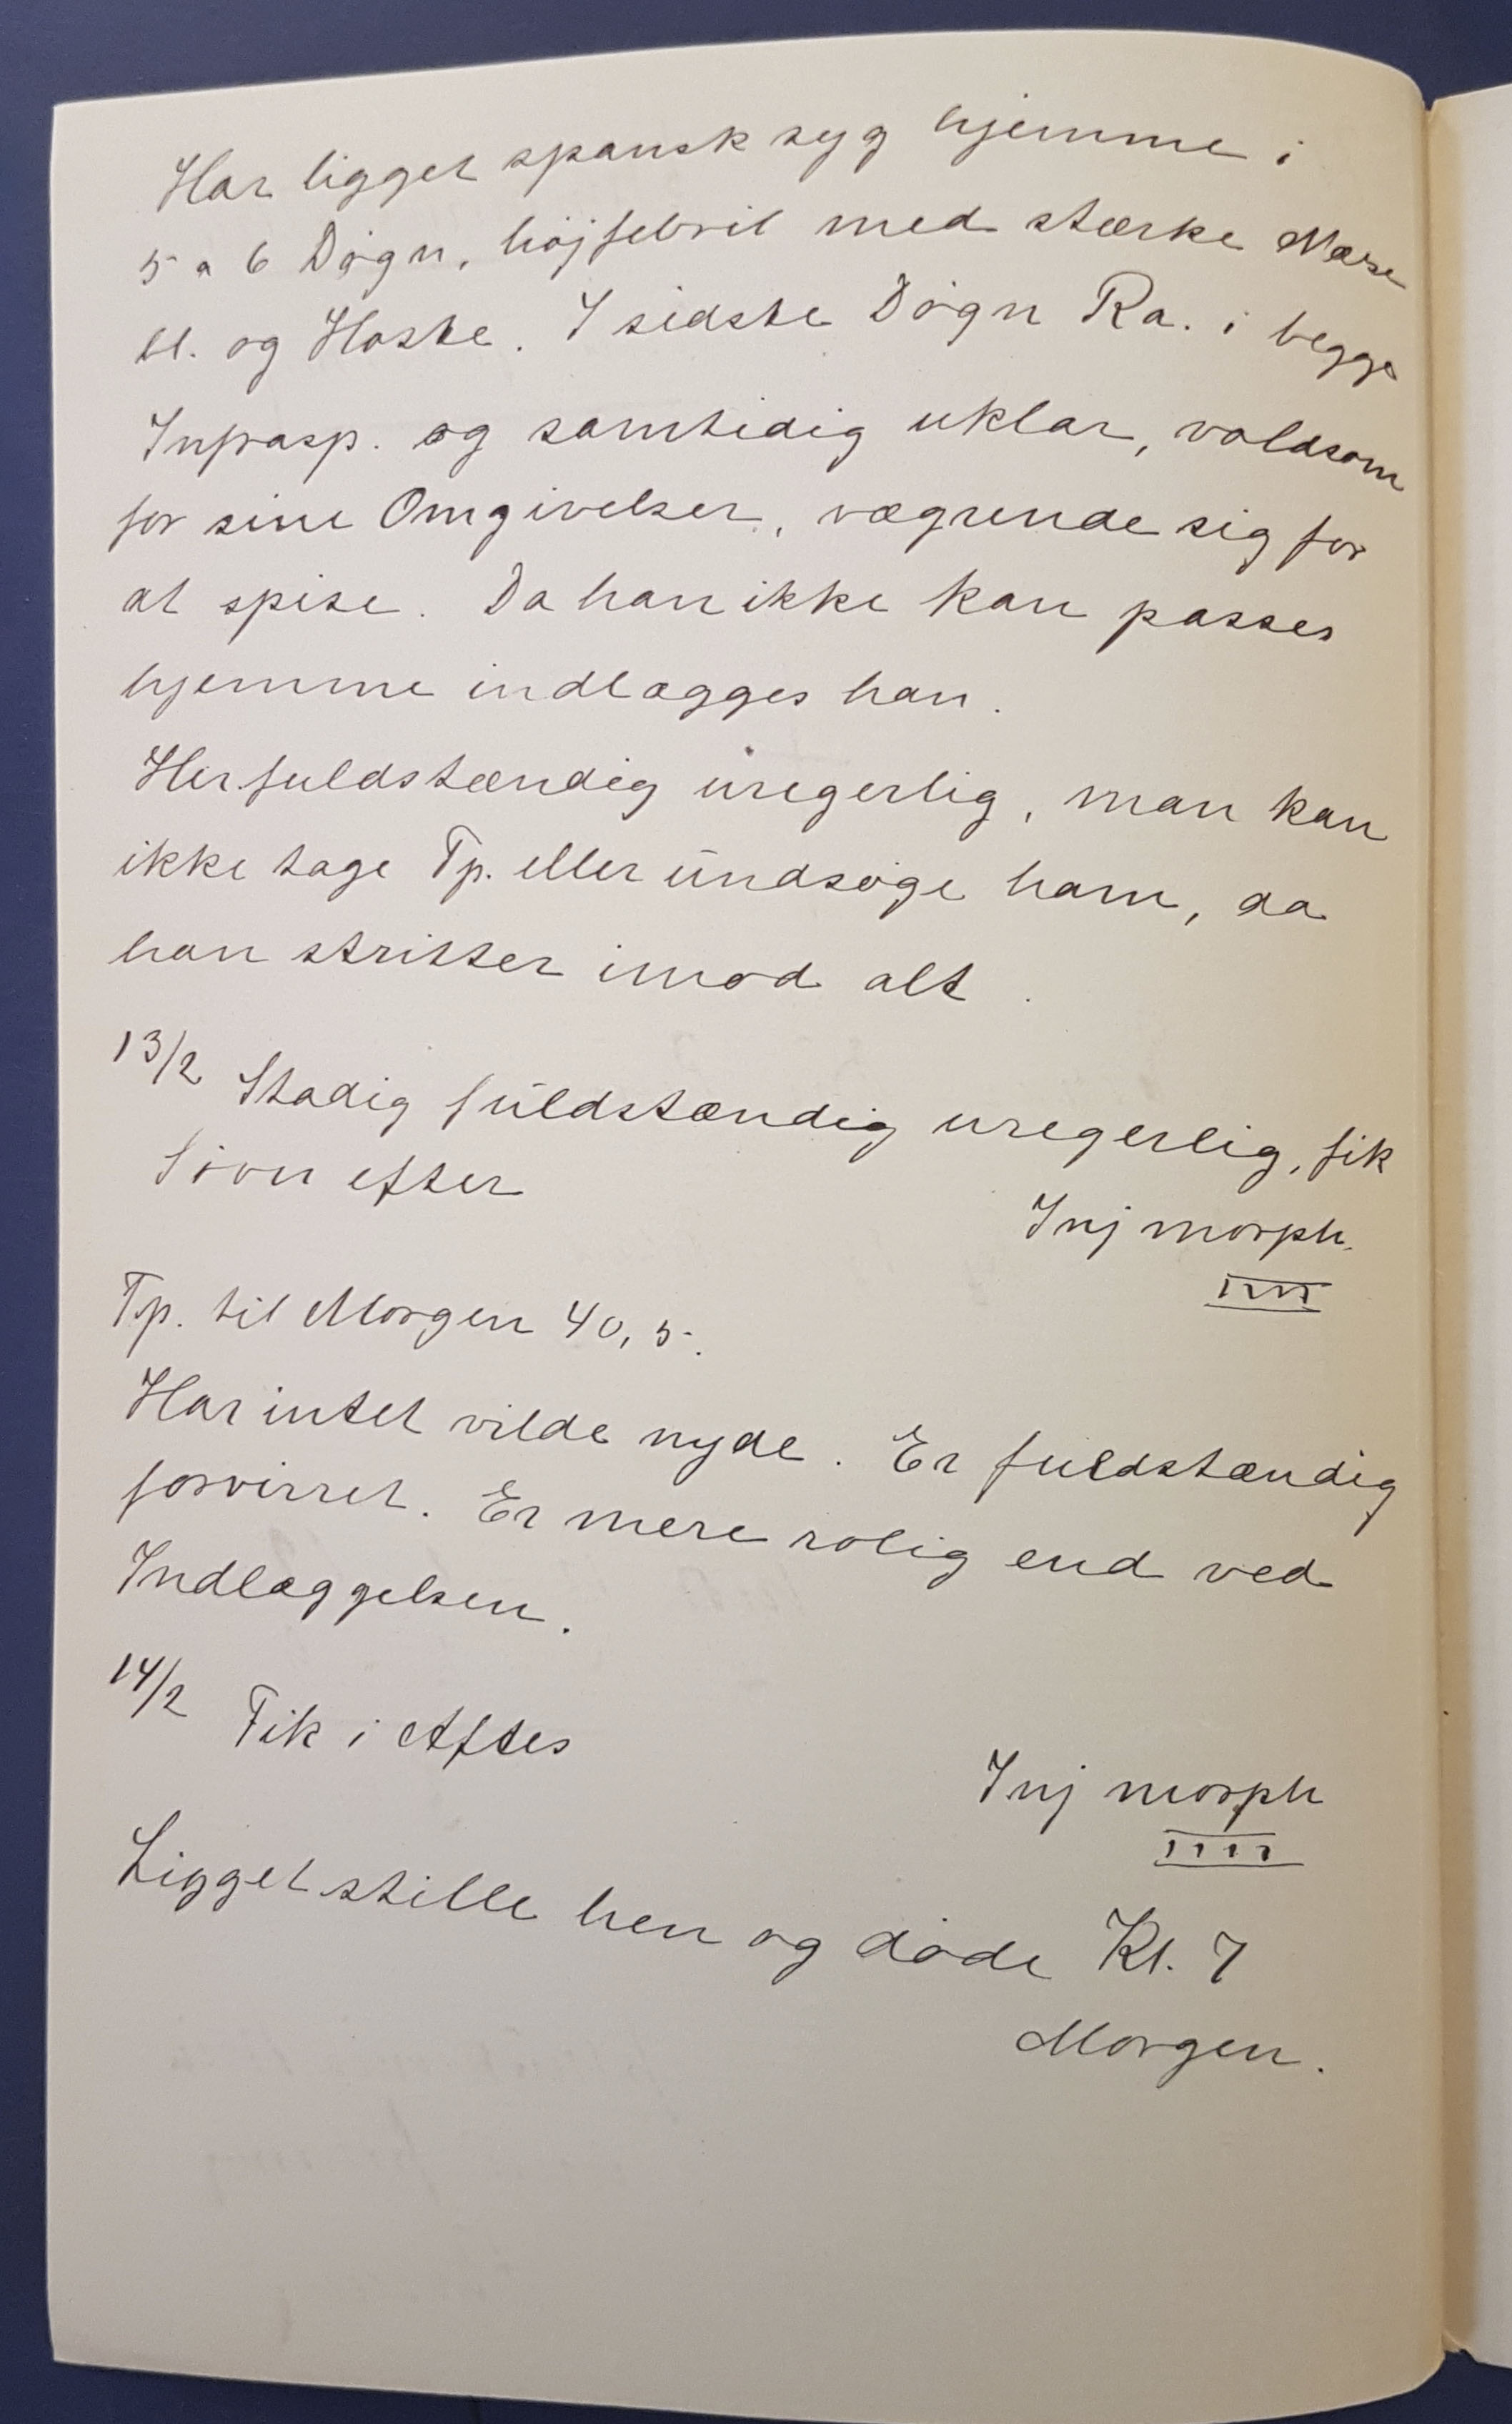 Har ligget spansk syg hjemme i
5 a 6 Døgn, højfebril med stærke Næse
bl. og Hoste. I sidste Døgn Ra. i begge
Infrasp. og samtidig uklar, voldsom
for sine Omgivelser, vægrende sig for
at spise. Da han ikke kan passes
hjemme indlægges han.
Her fuldstændig uregerlig, man kan
ikke tage Tp. eller undsøge ham, da
han stritter imod alt.
13/2 Stadig fuldstændig uregerlig, fik
Søvn efter
Inj morph.
Tp. til Morgen 40,5.
Har intet vilde nyde. Er fuldstændig
forvirret. Er mere rolig end ved
Indlæggelsen.
14/2 Fik i Aftes
Inj morph
IIII
Ligget stille hen og døde Kl. 7
Morgen.